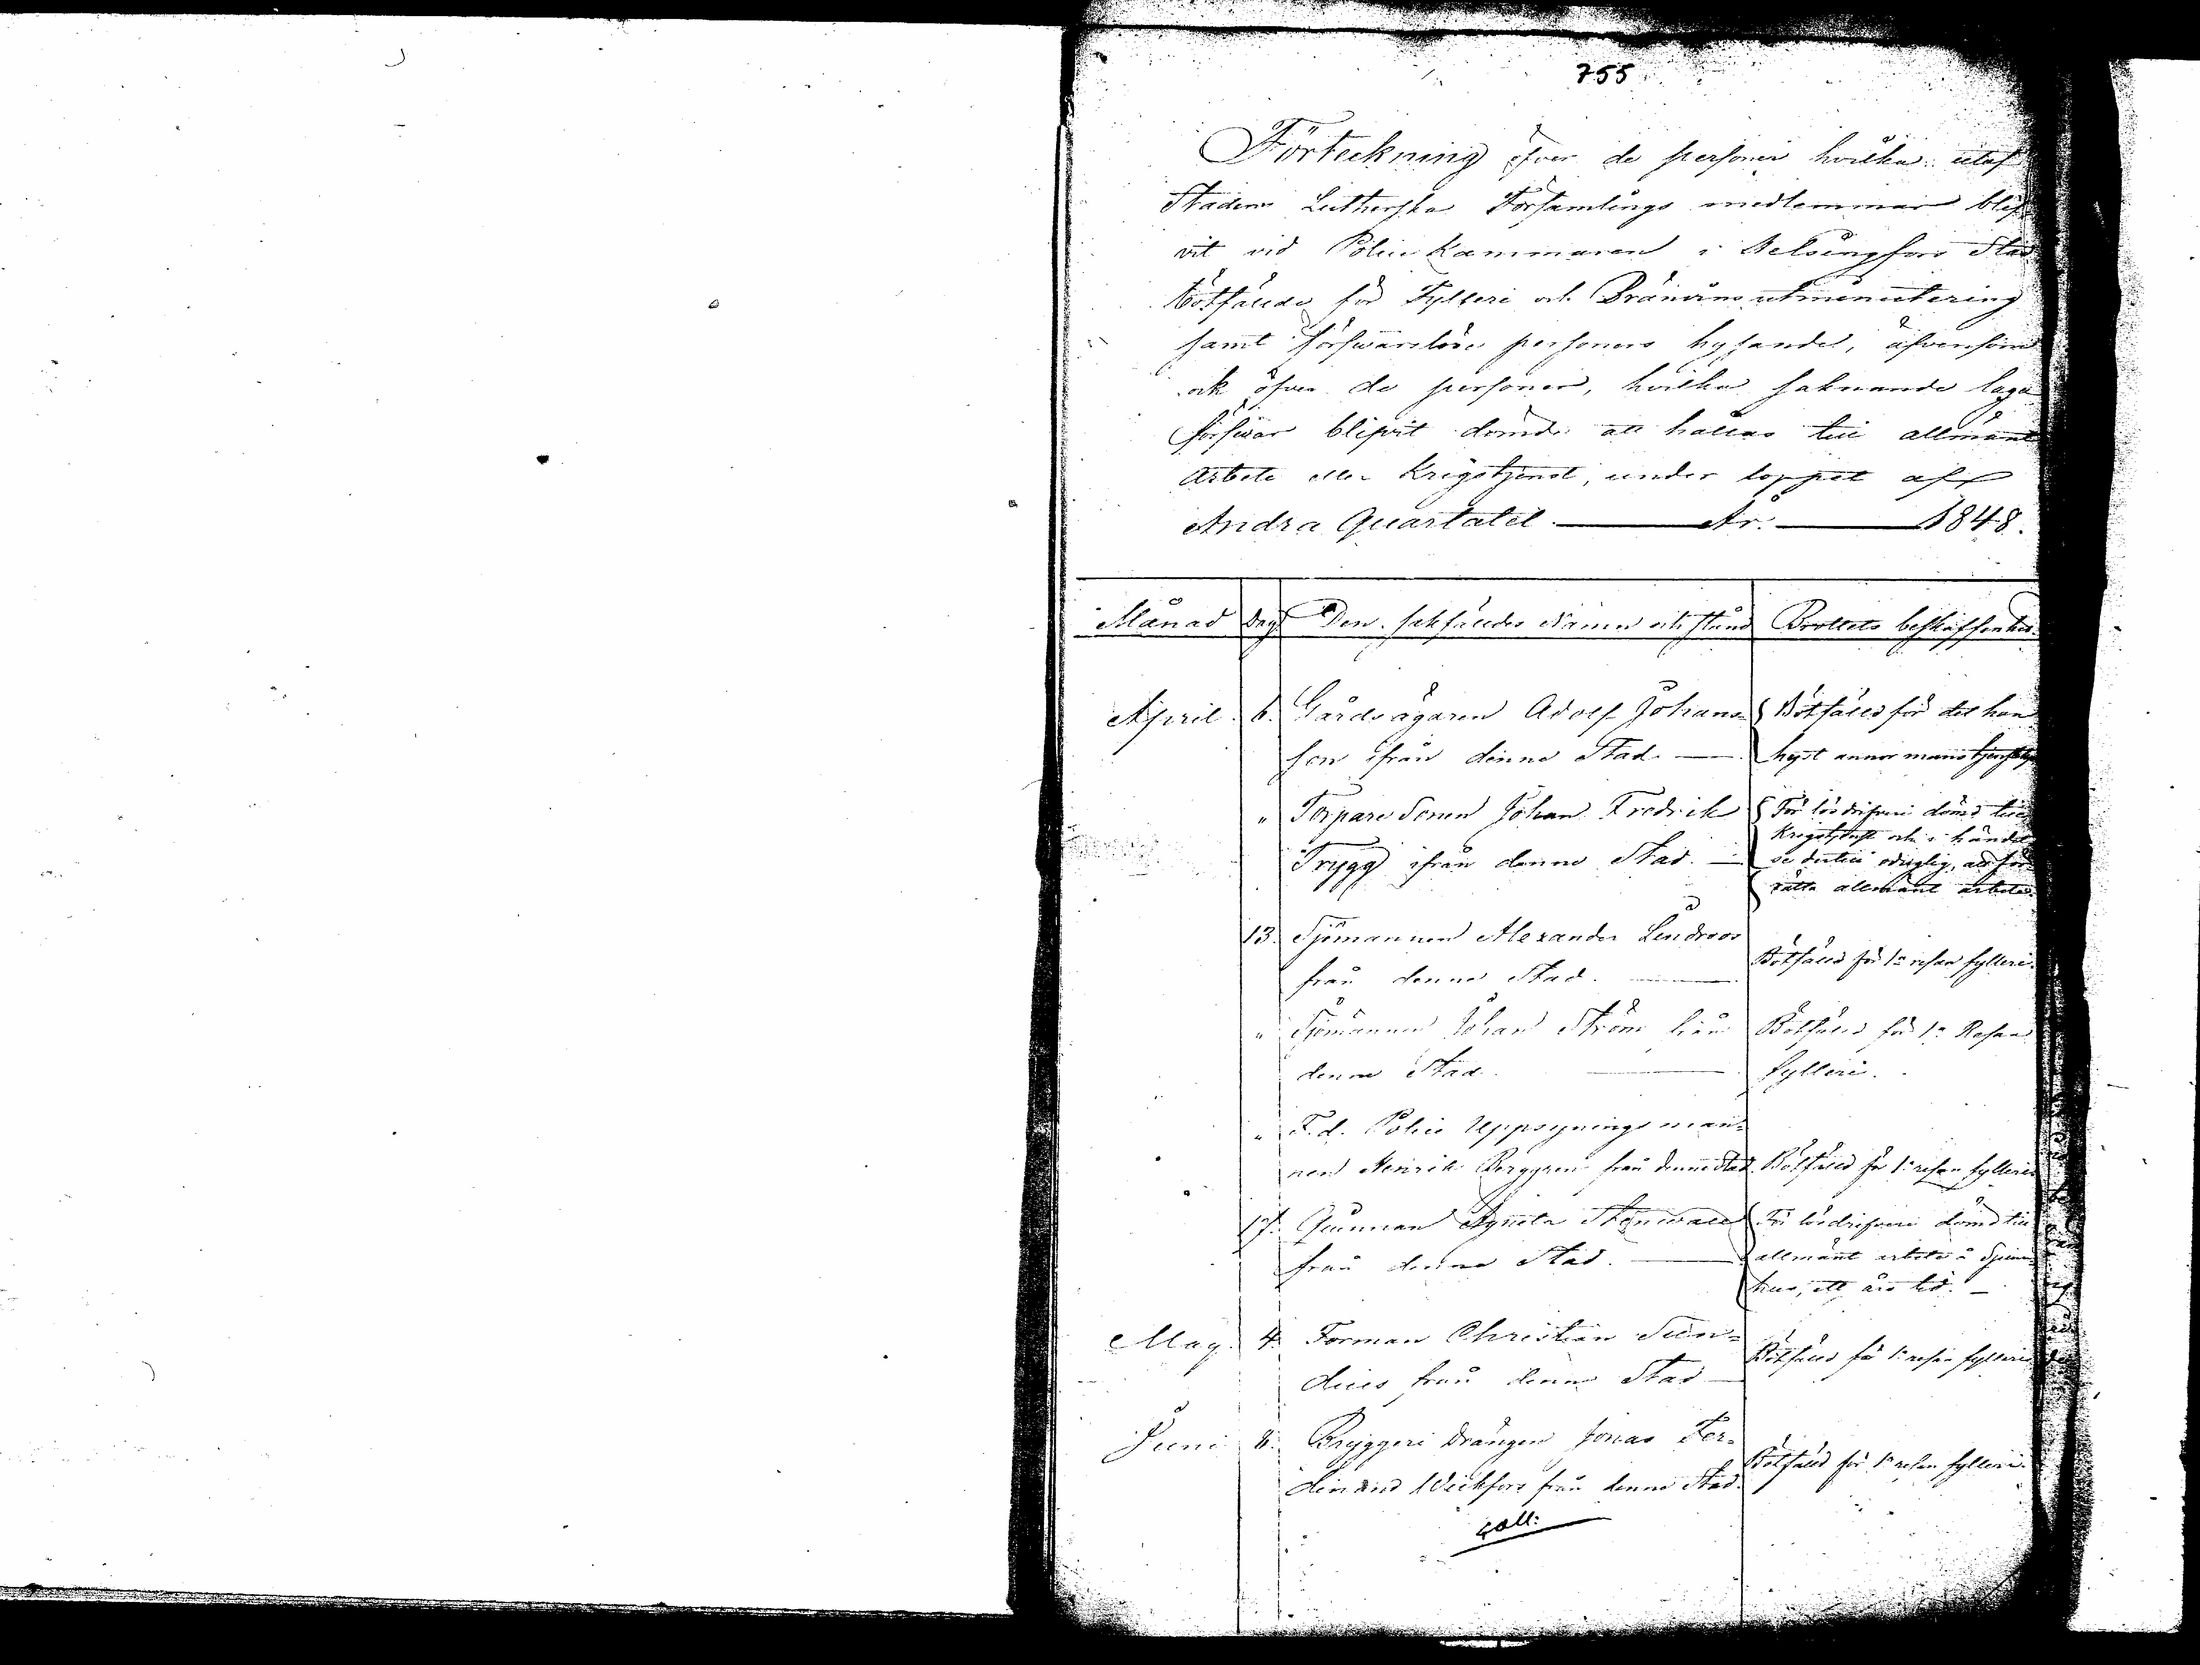 755
Förteckning öfver de personer hvilka utaf
Stadens Lutherska Församlings medlemmar blif
vit vid Police Kammaren i Helsingfors Stad
bötfällde för Fylleri och Bränvins utminutering
samt försvarslöse personers hysande, äfvensom
ock öfver de personer, hvilka saknande laga
försvar blifvit dömde att hållas till allmänt
arbete eller Krigstjenst, under loppet af
Andra Quartalet År. 1848.
Månad Dag Den sakfälldes Namn och stånd Brottets beskaffenhet
April 6. Gårdsägaren Adolf Johans= Bötfälld för det han
son ifrån denne Stad. hyst annor mans
" Torpare Sonen Johan Fredrik För lösdrifveri dömd till
Krigstjenst och i händel
Trygg ifrån denne Stad. se dertill oduglig, att för
rätta allmänt arbete.
13. Sjömannen Alexander Lindroos
från denne Stad. Bötfälld för 1a resan fylleri.
" Sjömannen Johan Ström från Bötfälld för 1a Resan
denne Stad. fylleri.
" F.d. Police Uppsynings man=
nen Henrik Berggren från denne Stad. Bötfälld för 1a resan fylleri
17. Qvinnan Agneta Stenwall För lösdrifveri dömd till
från denne Stad. allmänt arbete å Spinn
hus, ett års tid.
May. 4. Forman Christian Sun=
dius från denne Stad Bötfälld för 1a resan fylleri
Juni 8. Bryggeri Drängen Jonas Fer=
dinand Wickfors från denne Stad. Bötfälld för 1a resan fylleri.
coll: